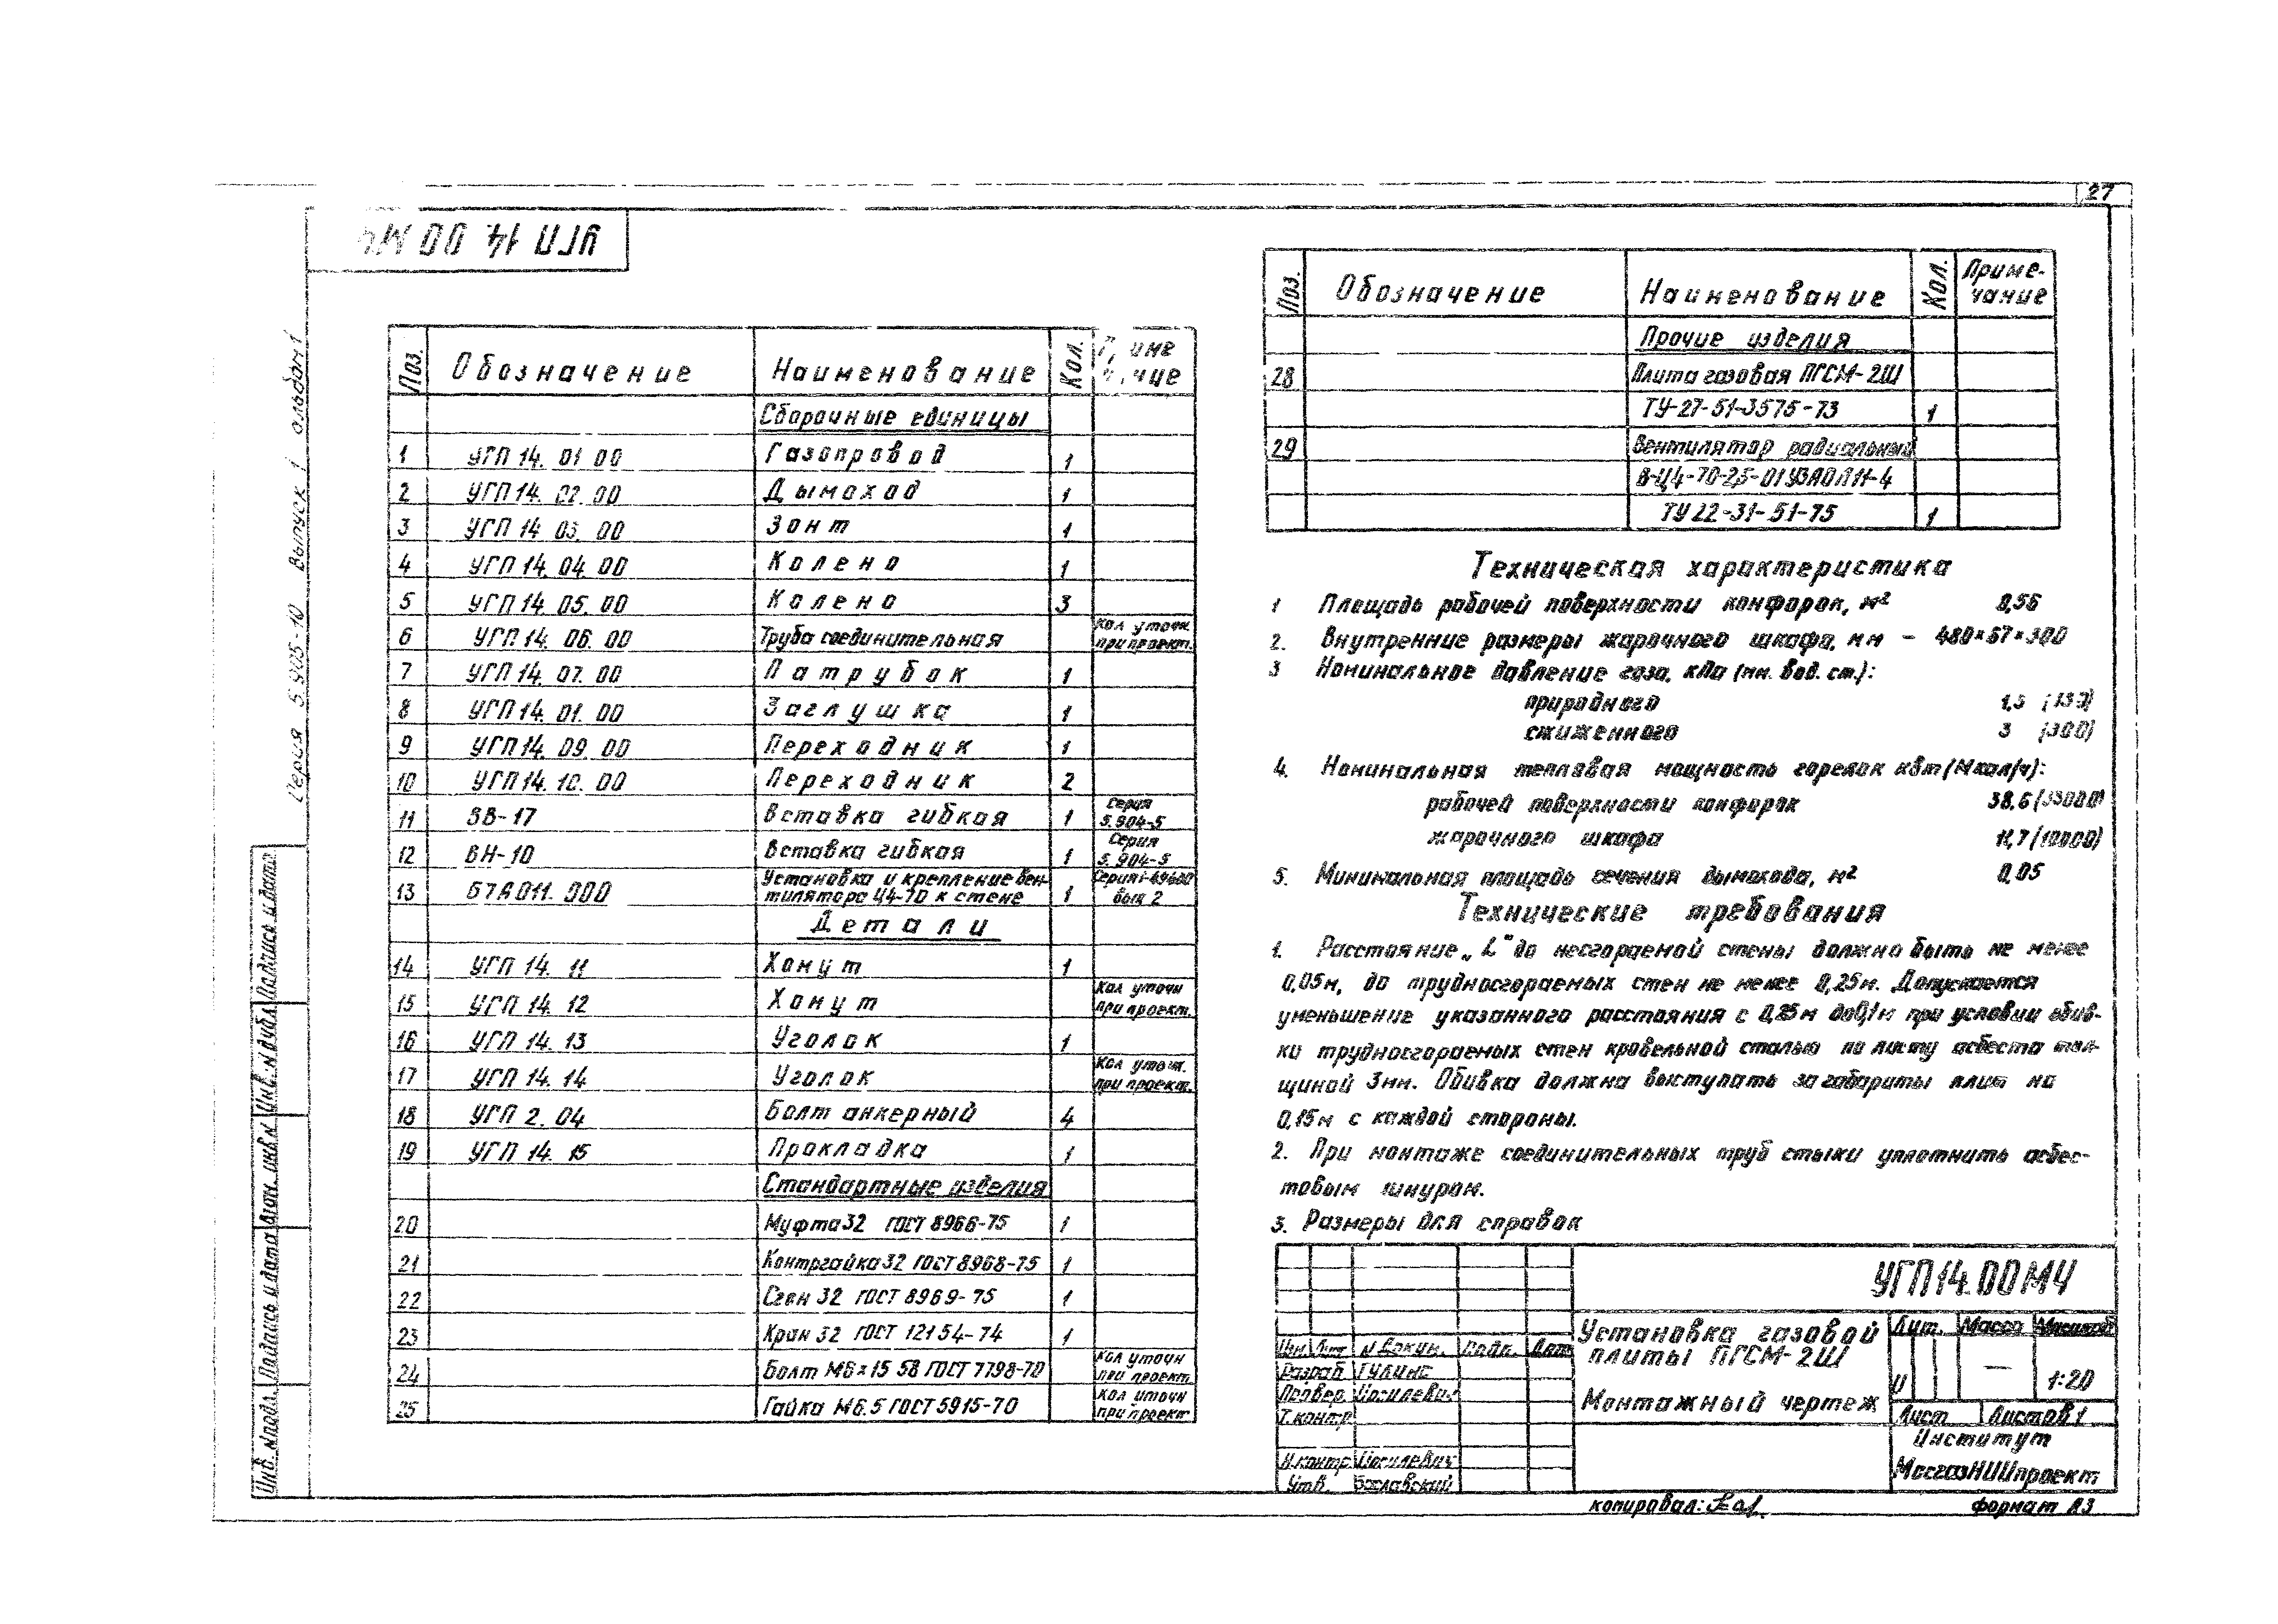 27
УГП 14. 00 МЧ
Серия 5.905-10 Выпуск 1 альбом 1
Поз. Обозначение Наименование Кол.
Сборочные единицы
1 УГП 14. 01 00 Газопровод 1
2 УГП 14. 02. 00 Дымоход 1
3 УГП 14 03. 00 Зонт 1
4 УГП 14. 04. 00 Колено 1
5 УГП 14. 05. 00 Колено 3
6 УГП. 14. 06. 00 Труба соединительная Кол уточн. при проект.
7 УГП 14. 07. 00 Патрубок 1
8 УГП 14. 01. 00 Заглушка 1
9 УГП 14. 09. 00 Переходник 1
10 УГП 14. 10. 00 Переходник 2
11 ВВ-17 Вставка гибкая 1 Серия 5.904-5
12 ВН-10 Вставка гибкая 1 Серия 5.904-5
13 Б7А011. 000 Установка и крепление вен-
тилятора Ц4-70 к стене 1 вып 2
Детали
14 УГП 14. 11 Хомут 1
15 УГП 14. 12 Хомут Кол уточн при проект.
16 УГП 14. 13 Уголок 1
17 УГП 14. 14 Уголок Кол уточн. при проект.
18 УГП 2. 04 Болт анкерный 4
19 УГП 14. 15 Прокладка 1
Стандартные изделия
20 Муфта 32 ГОСТ 8966-75 1
21 Контргайка 32 ГОСТ 8968-75 1
22 Сгон 32 ГОСТ 8969-75 1
23 Кран 32 ГОСТ 12154-74 1
24 Болт М6×15 58 ГОСТ 7798-70 Кол уточн при проект
25 Гайка М6.5 ГОСТ 5915-70 Кол уточн при проект
Поз. Обозначение Наименование Кол. Приме-
чание
Прочие изделия
28 Плита газовая ПГСМ-2Ш
ТУ-27-51-3575-73 1
29 Вентилятор радиальный
В-Ц4-70-2,5-01УЗАОЛ11-4
ТУ 22-31-51-75 1
Техническая характеристика
1 Площадь рабочей поверхности конфорок, м² 0,56
2. Внутренние размеры жарочного шкафа, мм - 480×67×300
3 Номинальное давление газа, кПа (мм. вод. ст.):
природного 1,3 (130)
сжиженного 3 (300)
4. Номинальная тепловая мощность горелок кВт (Мкал/ч):
рабочей поверхности конфорок 38,6 (33000)
жарочного шкафа 11,7 (10000)
5. Минимальная площадь сечения дымохода, м² 0,05
Технические требования
1. Расстояние „L" до несгораемой стены должно быть не менее
0,05м, до трудносгораемых стен не менее 0,25м. Допускается
уменьшение указанного расстояния с 0,25м до 0,1м при условии обив-
ки трудносгораемых стен кровельной сталью по листу асбеста тол-
щиной 3мм. Обивка должна выступать за габариты плит на
0,15м с каждой стороны.
2. При монтаже соединительных труб стыки уплотнить асбес-
товым шнуром.
3. Размеры для справок
УГП14.00МЧ
Изм Лист N докум. Подп. Дат
Разраб Гулинс
Провер Иосилевич
Т.контр
Н.контр Иосилевич
Утв. Богславский
Установка газовой
плиты ПГСМ-2Ш
Монтажный чертеж
Лит. Масса Масштаб
И — 1:20
Лист Листов 1
Институт
МосгазНИИпроект
копировал:
формат А3
Инв. N подл. Подпись и дата Взам. инв N Инв. N дубл Подпись и дата